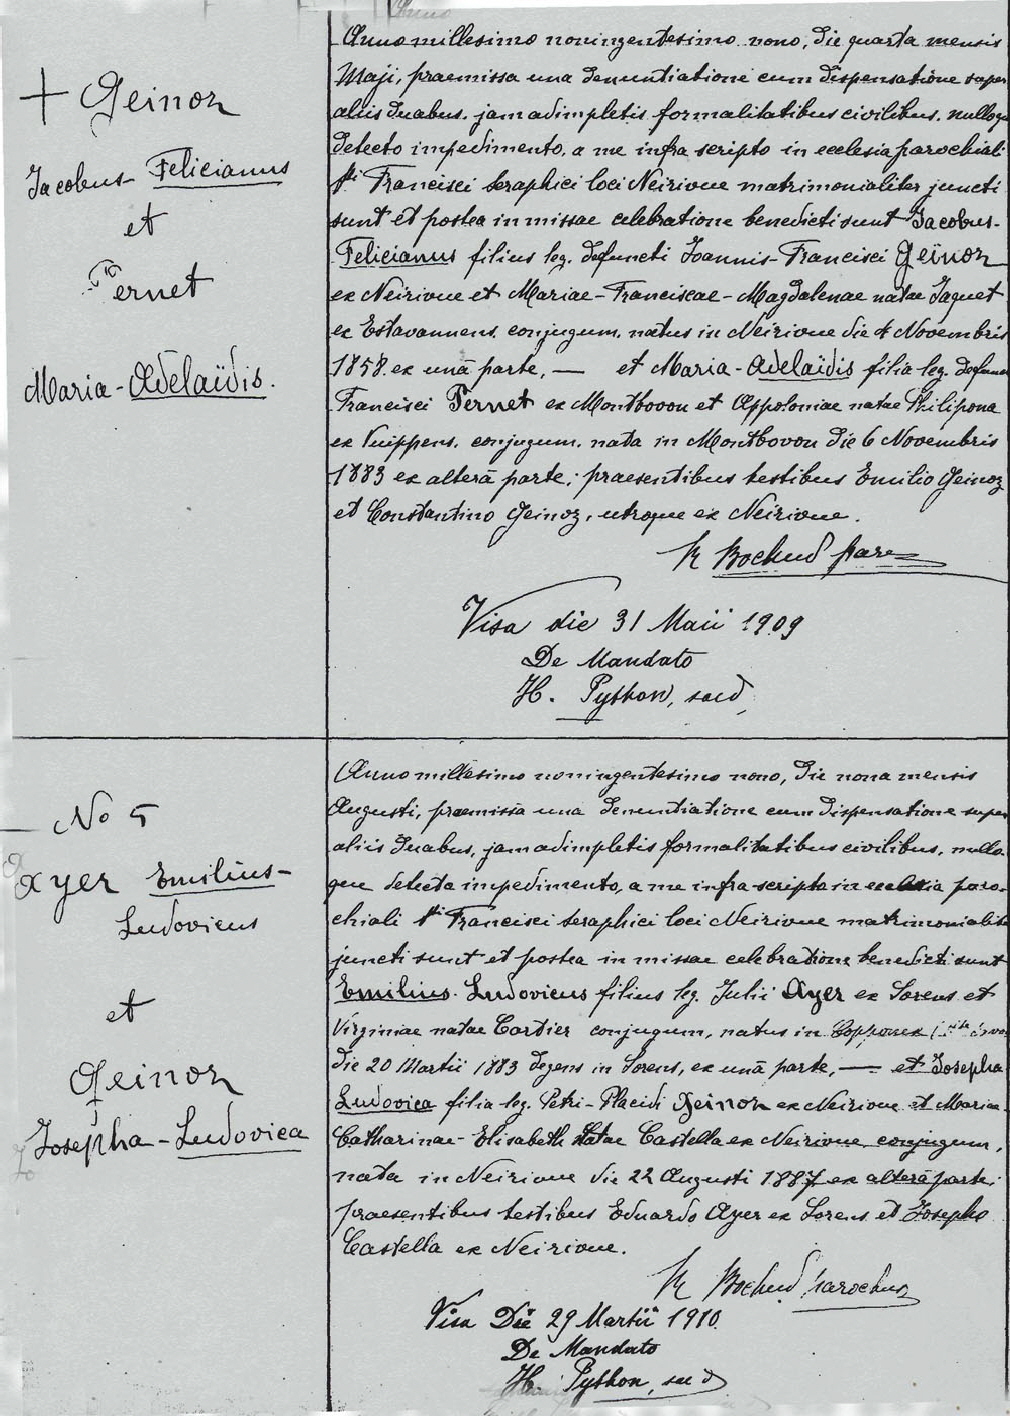 Anno millesimo noningentesimo nono, die quarta mensis
Maji, praemissa una denuntiatione cum dispensatione super
aliis duabus. jam adimpletis formalitatibus civilibus. nulloque
detecto impedimento, a me infra scripto in ecclesia parochiali
sti Francisci seraphici loci Neirivue matrimonialiter juncti
sunt et postea in missae celebratione benedicti sunt Jacobus-
Felicianus filius leg. defuncti Joannis-Francisci Geinoz
ex Neirivue et Mariae-Franciscae-Magdalenae natae Jaquet
ex Estavannens. conjugum. natus in Neirivue die 4 Novembris
1858. ex unâ parte, — et Maria-Adelaïdis filia leg. defunc
Francisci Pernet ex Montbovon et Appoloniae natae Philipona
ex Vuippens. conjugum. nata in Montbovon die 6 Novembris
1883 ex alterâ parte; praesentibus testibus Emilio Geinoz
et Constantino Geinoz, utroque ex Neirivue.
Bochud
Visa die 31 Maii 1909
De Mandato
H. Python,
+ Geinoz
Jacobus Felicianus
et
Pernet
Maria-Adelaïdis.
Anno millesimo noningentesimo nono, die nona mensis
Augusti, praemissa una denuntiatione cum dispensatione super
aliis duabus, jam adimpletis formalitatibus civilibus, nullo-
que detecto impedimento, a me infra-scripto in ecclesia paro-
chiali sti Francisci seraphici loci Neirivue matrimonialiter
juncti sunt et postea in missae celebratione benedicti sunt
Emilius. Ludovicus filius leg. Julii Ayer ex Sorens et
Virginiae natae Cartier conjugum, natus in Copponex
die 20 Martii 1883 degens in Sorens, ex unâ parte, — et Josepha
Ludovica filia leg. Petri-Placidi Geinoz ex Neirivue et Mariae
Catharinae-Elisabeth natae Castella ex Neirivue conjugum,
nata in Neirivue die 22 Augusti 1887 ex alterâ parte;
praesentibus testibus Eduardo Ayer ex Sorens et Josepho
Castella ex Neirivue.
Bochud parochus
Visa Die 29 Martii 1910.
De Mandato
H. Python,
No 5
Ayer Emilius-
Ludovicus
et
Geinoz
Josepha-Ludovica